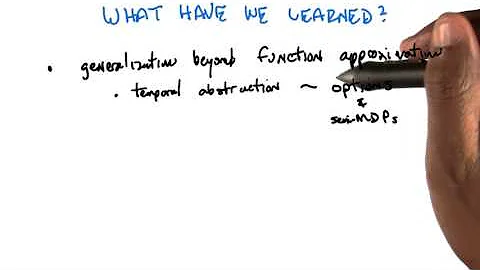 WHAT HAVE WE LEARNED?
• generalization beyond function approximation
• temporal abstraction ~ options
&
semi-MDPs